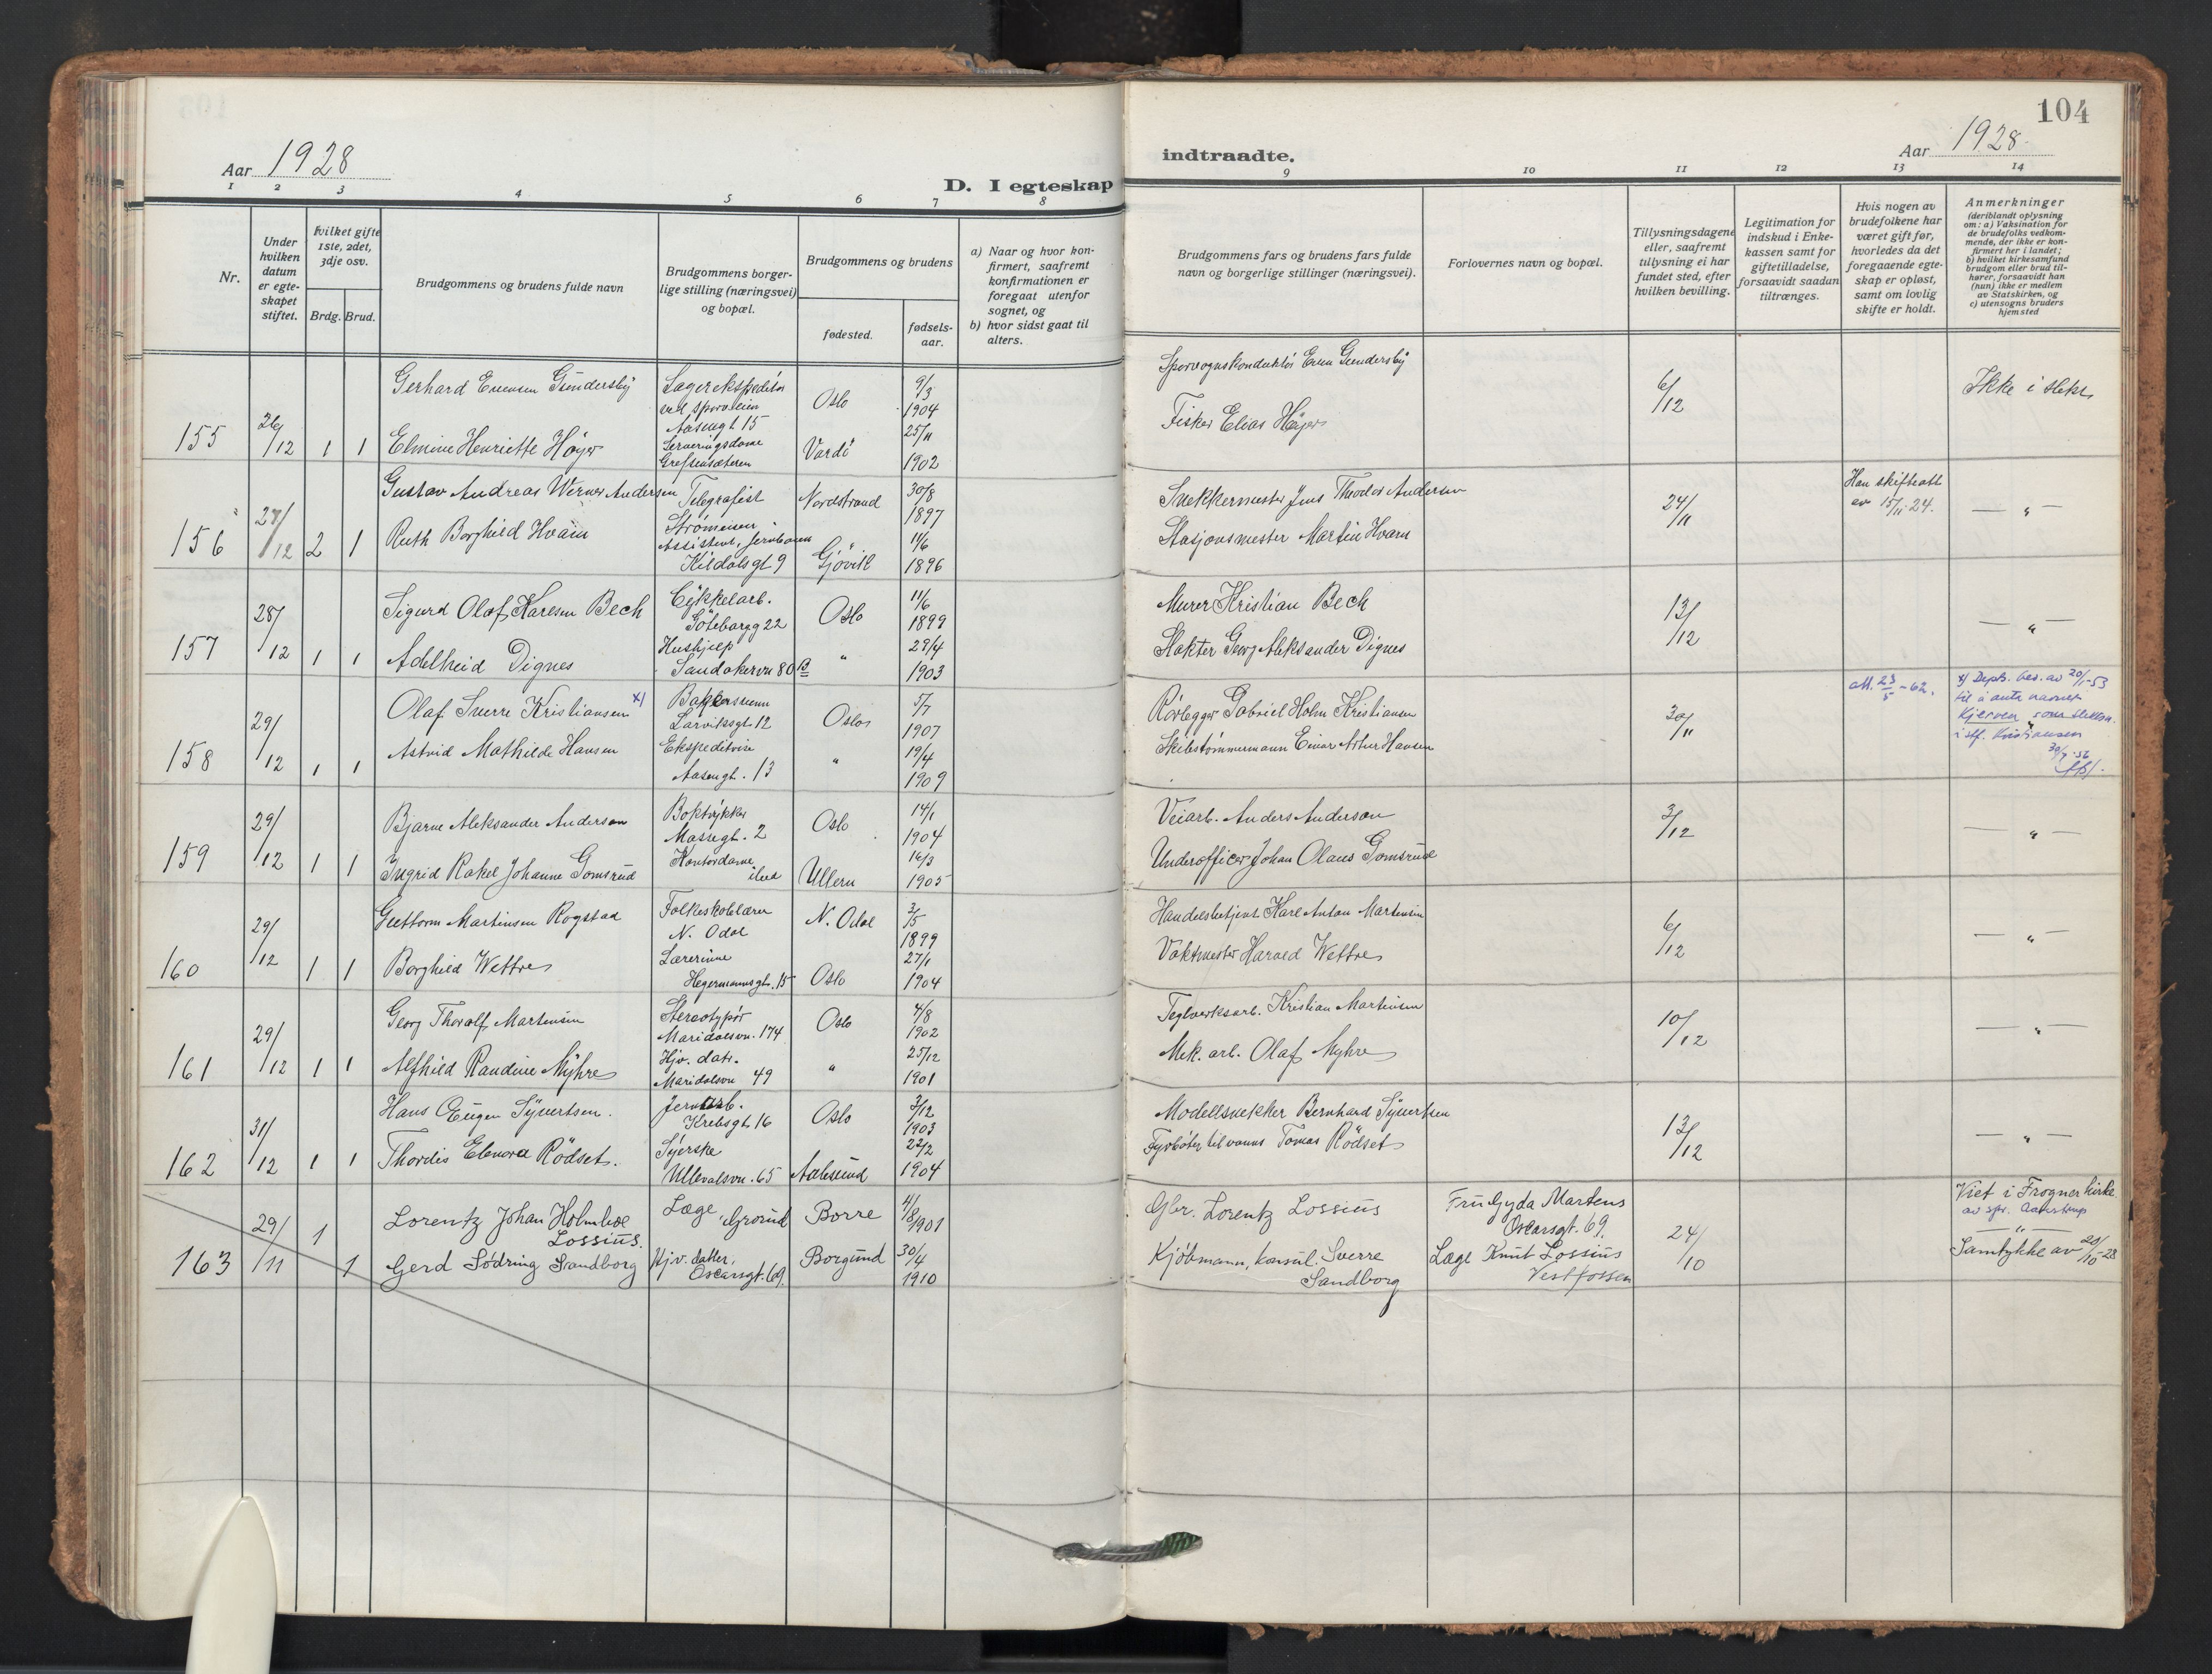 104
Aar 1928
D. I egteskap
indtraadte.
Aar 1928.
1 2 3 4 5 6 7 8 9 10 11 12 13 14
Nr.
Under hvilken datum er egteskapet stiftet.
hvilket gifte 1ste, 2det, 3dje osv.
Brdg. Brud.
Brudgommens og brudens fulde navn
Brudgommens borgerlige stilling (næringsvei) og bopæl.
Brudgommens og brudens
fødested.
fødselsaar.
a) Naar og hvor konfirmert, saafremt konfirmationen er foregaat utenfor sognet, og
b) hvor sidst gaat til alters.
Brudgommens fars og brudens fars fulde navn og borgerlige stillinger (næringsvei).
Forlovernes navn og bopæl.
Tillysningsdagene eller, saafremt tillysning ei har fundet sted, efter hvilken bevilling.
Legitimation for indskud i Enkekassen samt for giftetilladelse, forsaavidt saadan tiltrænges.
Hvis nogen av brudefolkene har været gift før, hvorledes da det foregaaende egteskap er opløst, samt om lovlig skifte er holdt.
Anmerkninger
(deriblandt oplysning om: a) Vaksination for de brudefolks vedkommende, der ikke er konfirmert her i landet; b) hvilket kirkesamfund brudgom eller brud tilhører, forsaavidt han (hun) ikke er medlem av Statskirken, og c) utensogns bruders hjemsted
155 26/12 1 1
Gerhard Evensen Gundersby Lagerekspeditør Oslo 9/3 1904 Sporvognskonduktør Even Gundersby 6/12 Ikke i slekt
Aasengt 15
Elmine Henriette Höyer Serveringsdame Grefsensæteren Vardö 25/11 1902 Fisker Elias Höyer
156 27/12 2 1
Gustav Andreas Werner Andersen Telegrafist Strömmen Nordstrand 30/8 1897 Snekkermester Jens Theodor Andersen 24/11 Han skifteatt av 15/11-24. — " —
Ruth Borghild Hvam Assistent, Jernbanen Kildalsgt 9 Gjövik 11/6 1896 Stasjonsmester Martin Hvam
157 28/12 1 1
Sigurd Olaf Karlsen Bech Cykkelarb. Göteborgg 22 Oslo 11/6 1899 Murer Kristian Bech 13/12 — " —
Adelheid Dignes Hushjelp Sandakervn 80 B " 29/4 1903 Slakter Georg Aleksander Dignes
158 29/12 1 1
Olaf Sverre Kristiansen x) Bakersvenn Larviksgt 12 Oslo 5/7 1907 Rörlegger Gabriel Holm Kristiansen 30/11 att. 23/5-62. x) Dept. bev. av 20/1-53 til å anta navnet Kjerven som slektsn. i stf. Kristiansen
Astrid Mathilde Hansen Ekspeditrise Aasengt. 13 " 19/4 1909 Skibstömmermann Einar Artur Hansen
159 29/12 1 1
Bjarne Aleksander Anderson Boktrykker Massegt. 2 Oslo 14/1 1904 Veiarb. Anders Anderson 3/12 — " —
Ingrid Rakel Johanne Gomsrud Kontordame ibid Ullern 16/3 1905 Underofficer Johan Olaus Gomsrud
160 29/12 1 1
Guttorm Martinsen Rogstad Folkeskolelærer N. Odal N. Odal 3/5 1899 Handelsbetjent Karl Anton Martinsen 6/12 — " —
Borghild Wettre Lærerinne Hegermannsgt. 15 Oslo 27/1 1904 Vaktmester Harald Wettre
161 29/12 1 1
Georg Thoralf Martinsen Stereotypör Maridalsvn. 174 Oslo 4/8 1902 Teglverksarb. Kristian Martinsen 10/12 — " —
Alfhild Randine Myhre Hjv. datr. Maridalsvn 49 " 25/12 1901 Mek. arb. Olaf Myhre
162 31/12 1 1
Hans Eugen Syvertsen. Jernarb. Krebsgt 16 Oslo 3/12 1903 Modellsnekker Bernhard Syvertsen 13/12 — " —
Thordis Elenora Rödset. Syerske Ullevalsvn. 65 Aalesund 22/2 1904 Fyrböter til vanns Tomas Rödset
163 29/11 1 1
Lorentz Johan Holmboe Lossius. Læge, Grorud Borre 4/8 1901 Gbr. Lorentz Lossius Fru Gyda Martens Oscarsgt. 69. 24/10 Viet i Frogner kirke av spr. Aanstrup
Gerd Södring Sandborg Hjv. datter, Oscarsgt. 69. Borgund 30/4 1910 Kjöbmann, konsul. Sverre Sandborg Læge Knut Lossius Vestfossen — " — Samtykke av 20/10-28